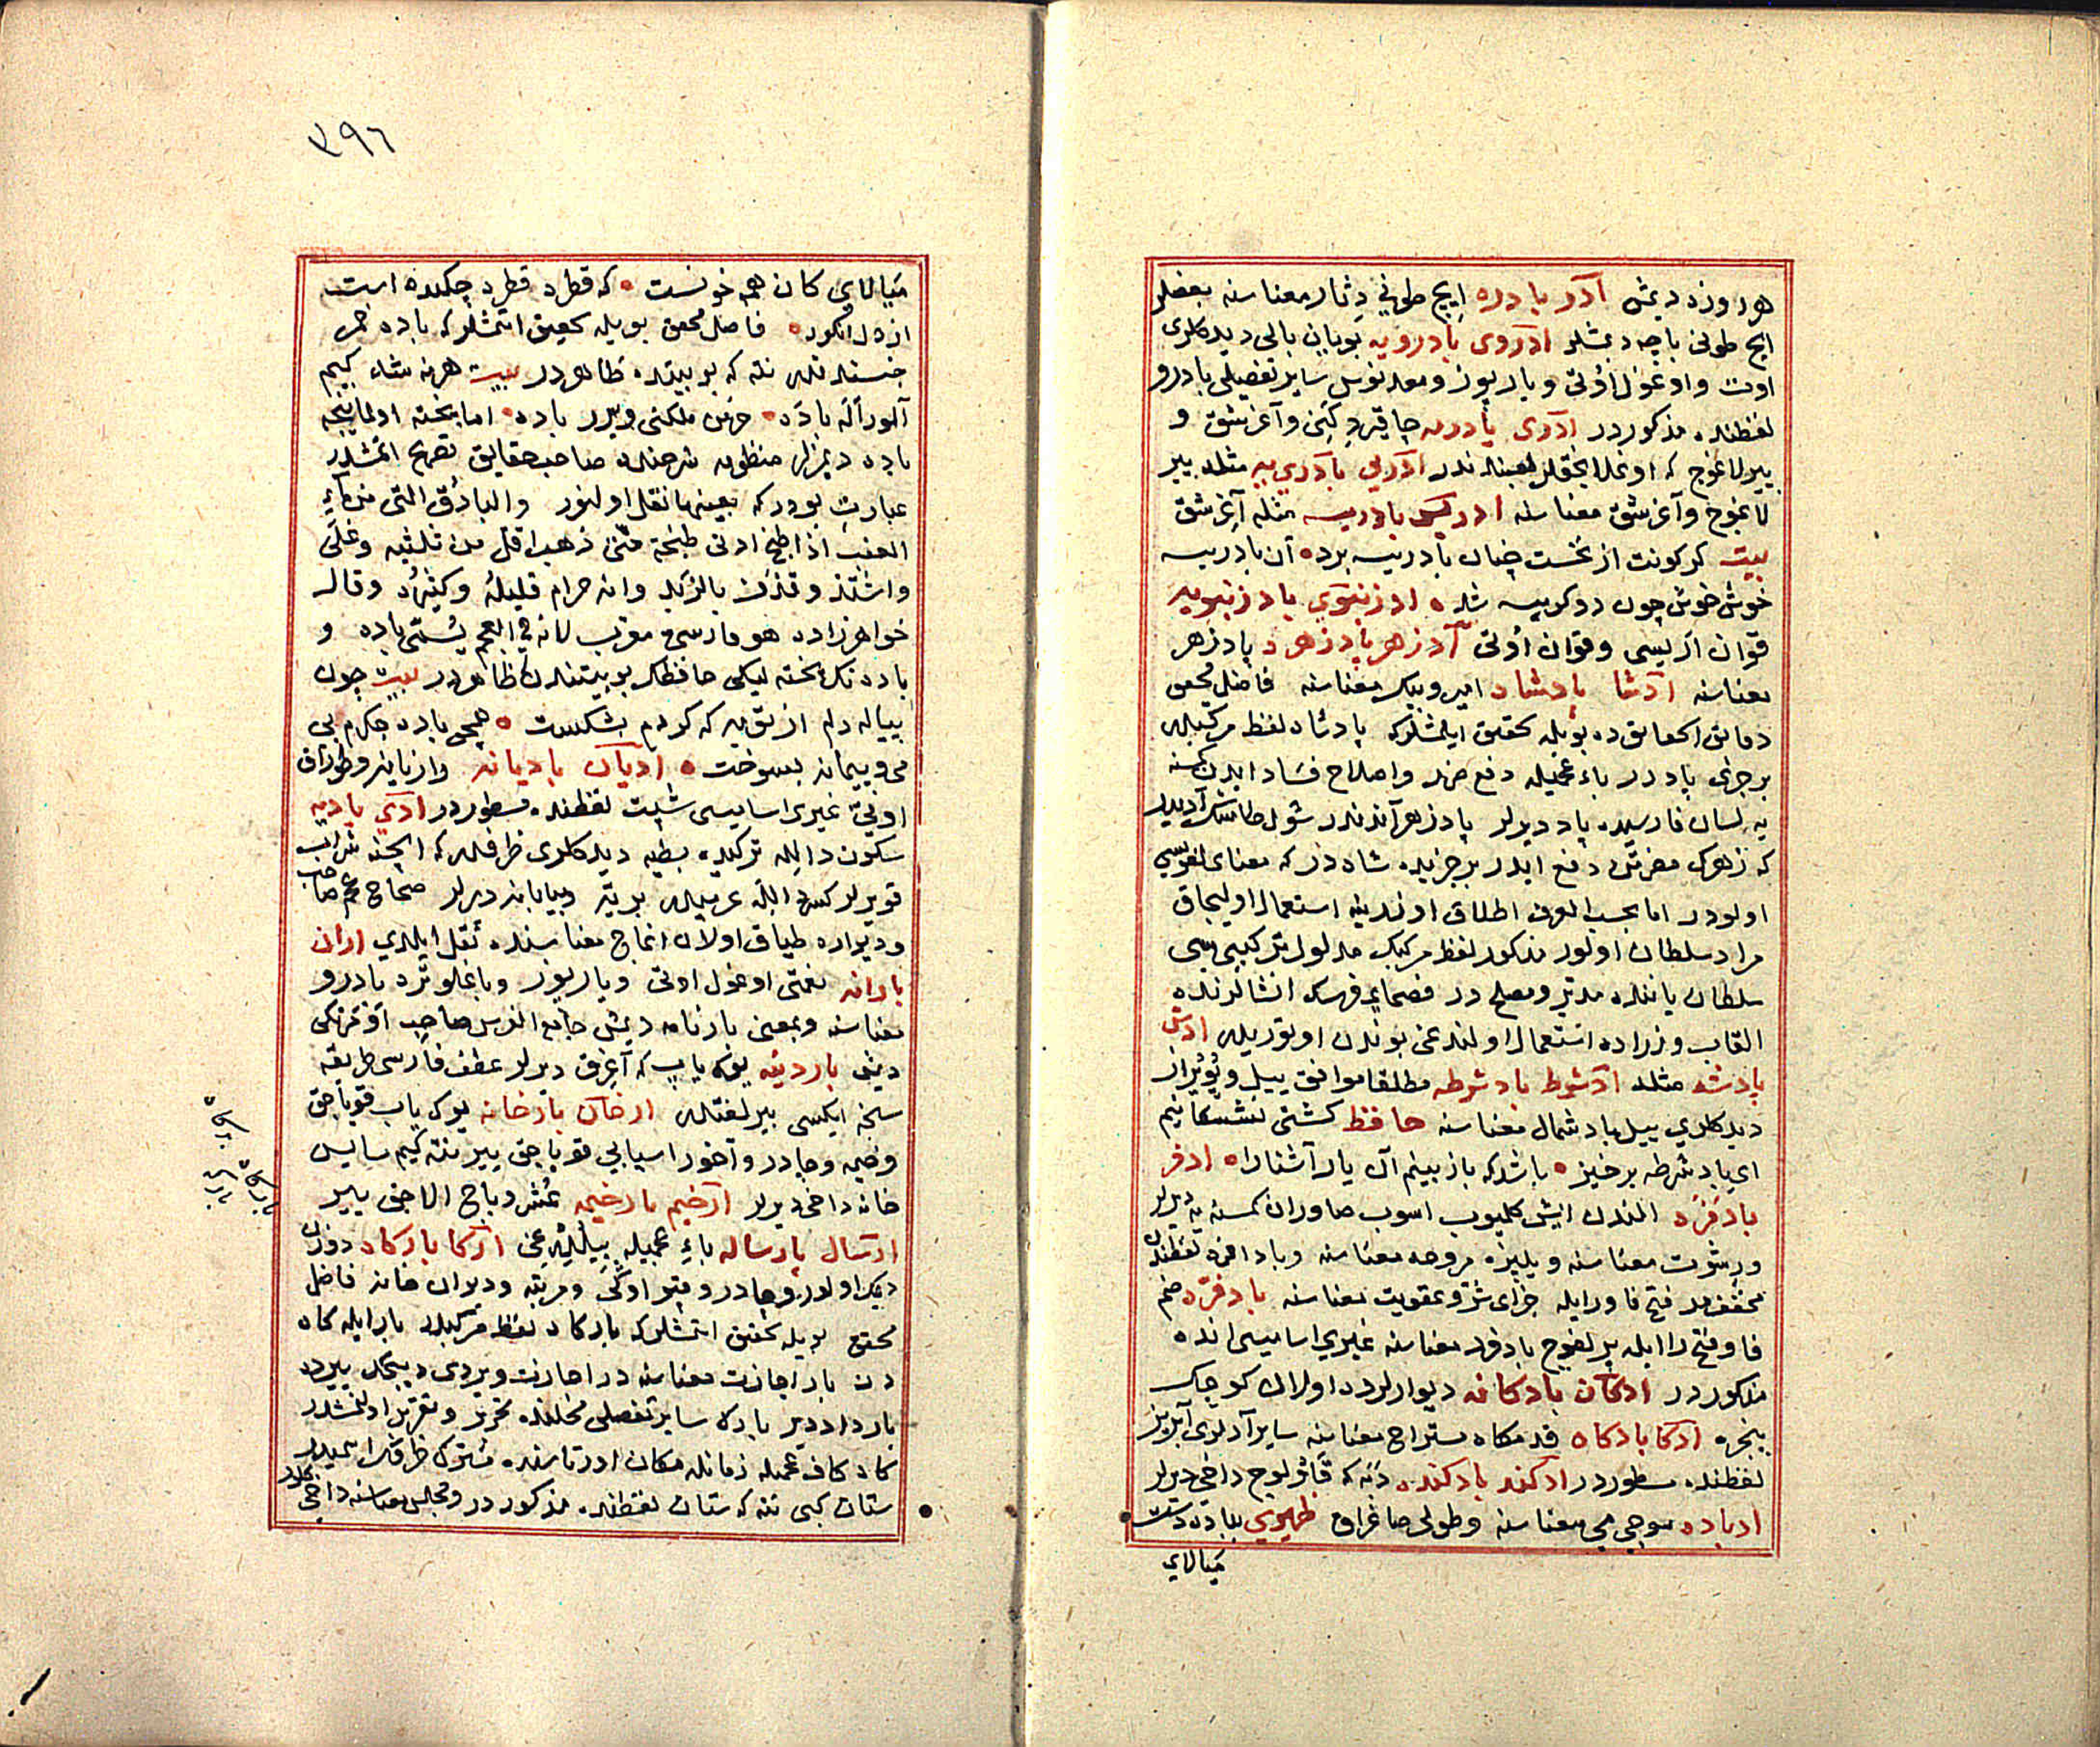 هر روزه دیمش آدر بادره ایچ طونی دثار معناسنه بعضلر
ایچ طونی باچه دیمشلر ادروی بادرویه بویان بالی دیدکلری
اوت و اوغول اوتی و بادیوز و معدنوس سایر تفصیلی بادرو
لفظنده مذکوردر ادری بادره و آغرشق و
ییر لاغوج که ادرنی بادریه مثله بیر
لاغوج و آغرشق معناسنه ادرس بادریسه مثله آغرشق
بیت کر کونت از نخست چنان بادریسه برده آن بادریسه
خوش خوش چون دوکریسه شد ادرنبوی بادرنبویه
قوان آرلیسی و قوان اوتی آدزهر پادزهر د پادزهر
معناسنه ادشا پادشاد امیر و بیک معناسنه فاضل محقق
دقایق الحقایق ده بویله تحقیق ایلمشلر که پادشاه لفظ مرکبدر
بر جزی پاددر باء عجمیله دفع ضرر و اصلاح فساد ایدن کسنه
یه لسان فارسیده پاد دیرلر پادزهر آندندر شول طاشک آدیدر
که زهرک مضرتن دفع ایدر بر جزیده شاددر که معنای لغویسی
اولودر اما بحسب العرف اطلاق اوزرینه استعمال اولیجاق
مراد سلطان اولور مذکور لفظ مرکبک مدلول ترکیبیسی
سلطان یاننده مدبر و مصلح در فصحای فرسک انشالرنده
القاب وزراده استعمال اولندغی بوندن اوتوریدر ادش
پادشه مثله ادشرط بادشرطه مطلقا موافق ییل و پویراز
دیدکلری ییل باد شمال معناسنه حافظ کشتی نشستگانیم
ای باد شرطه برخیز باشد که باز بینم آن یار آشنارا ادفر
بادفره الندن ایش کلمیوب اسوب صاوران کمسنه یه دیرلر
و رشوت معناسنه و یلپزه مروحه معناسنه و بادافره لفظندن
مخففدر فتح فا و را ایله جزای شر و عقوبت معناسنه بادفره ضم
فا و فتح را ایله بر لغوج بادفره معناسنه غیری اسامیسی انده
مذکوردر ادکان بادکانه دیوارلرده اولان کوچک
پنجره ادکا بادکاه قدمکاه مستراح معناسنه سایر آدلری آبریز
لفظنده مسطوردر ادکند بادکنده دبه که قاثرلوج داخی دیرلر
ادباده سوجی می معناسنه و طولی صاغراق ظهیری بباده دست
میالای
٣٩٦
میالای کان همه خونست که قطره قطره چکیده است
از دل انکور فاضل محقق بویله تحقیق ایتمشلر که باده خمر
جنسندندر نته که بو بیتده ظاهردر بیت هرنه شاء کیم
آلور اله باده ملکنی ویرر باده اما پخته اولماینجه
باده دیمزلر منظومه شرحنده صاحب حقایق تصریح ایتمشدر
عبارت بودر که بعینها نقل اولنور والباذق التی من ماء
العنب اذا طبخ ادنی طبخة حتی ذهب اقل من ثلثیه وغلی
واشتد وقذف بالزبد وانه حرام قلیله وکثیره وقال
خواهرزاده هو فارسی معرب لانه فی العجم یسمی باده و
باده نک پخته لیکی حافظک بو بیتندن ظاهردر بیت چون
پیاله دلم از توبه که کردم بشکست همچو باده جگرم بی
می و پیمانه بسوخت ادیان بادیانه و رازیانه و طوراق
اوتی غیری اسامیسی شبت لفظنده مسطوردر ادی بادیه
سکون دالله ترکیده بطیه دیدکلری ظرفدر که ایچنه شراب
قویرلر کسر دالله عربیدر بریه و بیابانه دیرلر صحاح عجم صاحب
و دیواره طیاق اولان اغاج معناسنده نقل ایلدی اران
بارانه نعمتی اوغول اوتی و باریوز و باغلو ترد بادرو
معناسنه و بمعنی بارنامه دیمش جامع الفرس صاحب اوترنکی
دیمش باردیه یوک یاپ که آغرق دیرلر عطف فارسی طریقه
سنجه ایکسی بیر لفتدر ارخان بارخانه یوک یاپ قویاجق
و خیمه و چادر و آخور اسبابی قویاجق ییر نته کیم سایس
خانه داخی دیرلر ارخیم بارخیمه عشر و باج الاجق ییر
ارسال پارساله باء عجمیله بیللیرغن ارکا بارکاد دوزن
دیمک اولور و چادر و قپو اوکی و مرتبه و دیوان خانه فاضل
محقق بویله تحقیق ایتمشلر که بارکاد لفظ مرکبدر بار ایله کاه
دن بار اجازت معناسنه در اجازت ویردی دییجک ییرده
بار داد دیر باره سایر تفصلی محلنده تحریر و تقریر اولنمشدر
کاد کاف عجمیله زمانله مکان اورتاسنده مشترک ظرفک اسمیدر
ستان کبی نته که ستان لفظنده مذکوردر و مجلس معناسنه داخی کلور